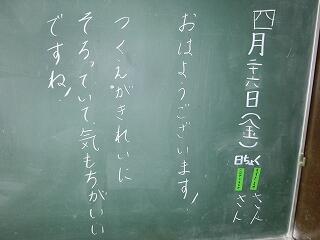 四月二十六日(金)
日ちょく
さん
さん
おはようございます!
つくえがきれいに
そろっていて、気もちがいい
ですね!